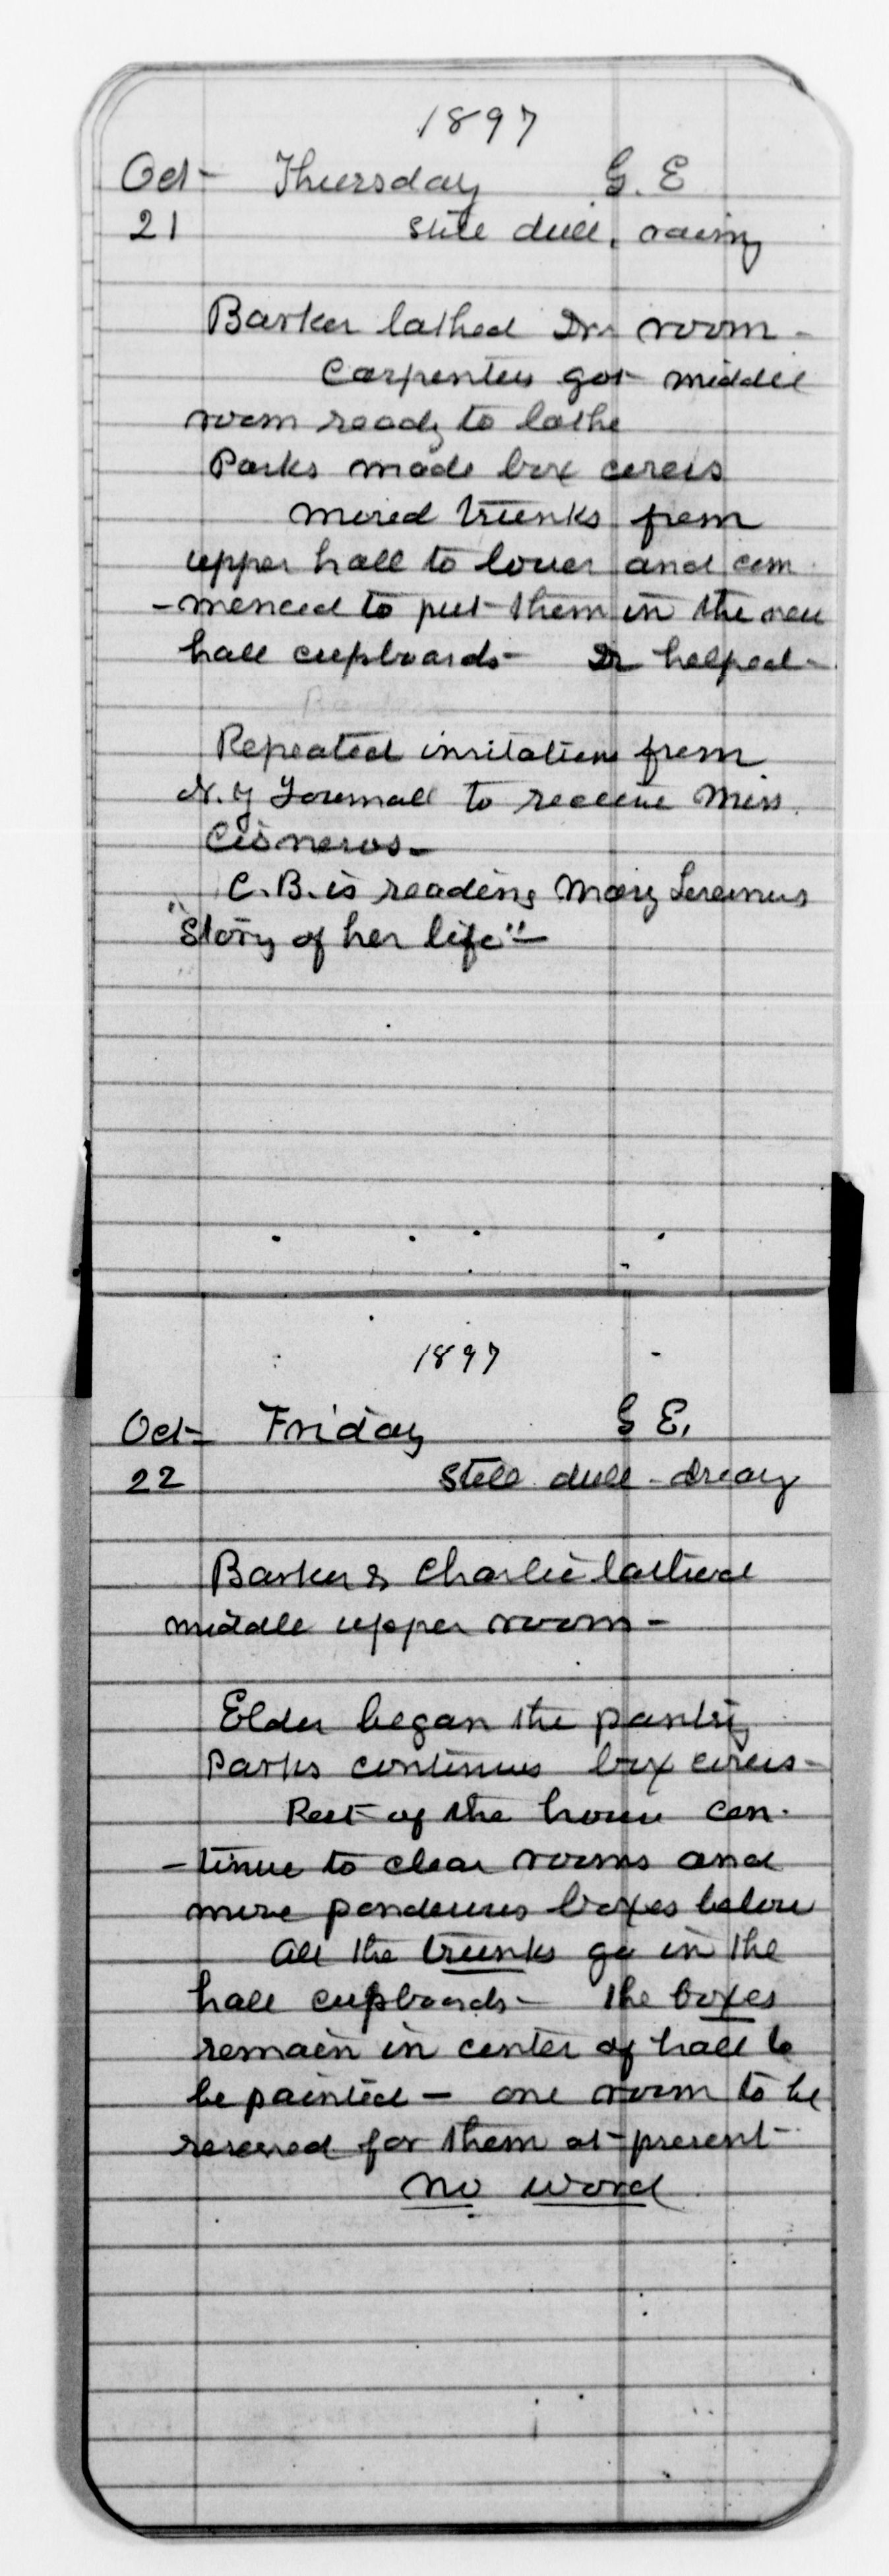 1897
Oct- Thursday G. E
21 still dull, rainy
Barker lathed Dr. room -
Carpenters got middle
room ready to lathe
Parks made box covers
moved trunks from
upper hall to lower and com
-menced to put them in the new
hall cupboards- Dr helped-
Repeated invitations from
N. Y Journall to receive Miss
Cisneros-
C. B. is reading Mary
"Story of her life"-
1897
Oct- Friday G E.
22 Still dull - dreary
Barker & Charlie lathed
middle upper room -
Elder began the pantry
Parks continues box covers -
Rest of the house con-
-tinue to clear rooms and
move ponderous boxes below
All the trunks go in the
hall cupboards- the boxes
remain in center of hall to
be painted - one room to be
reserved for them at present-
No word